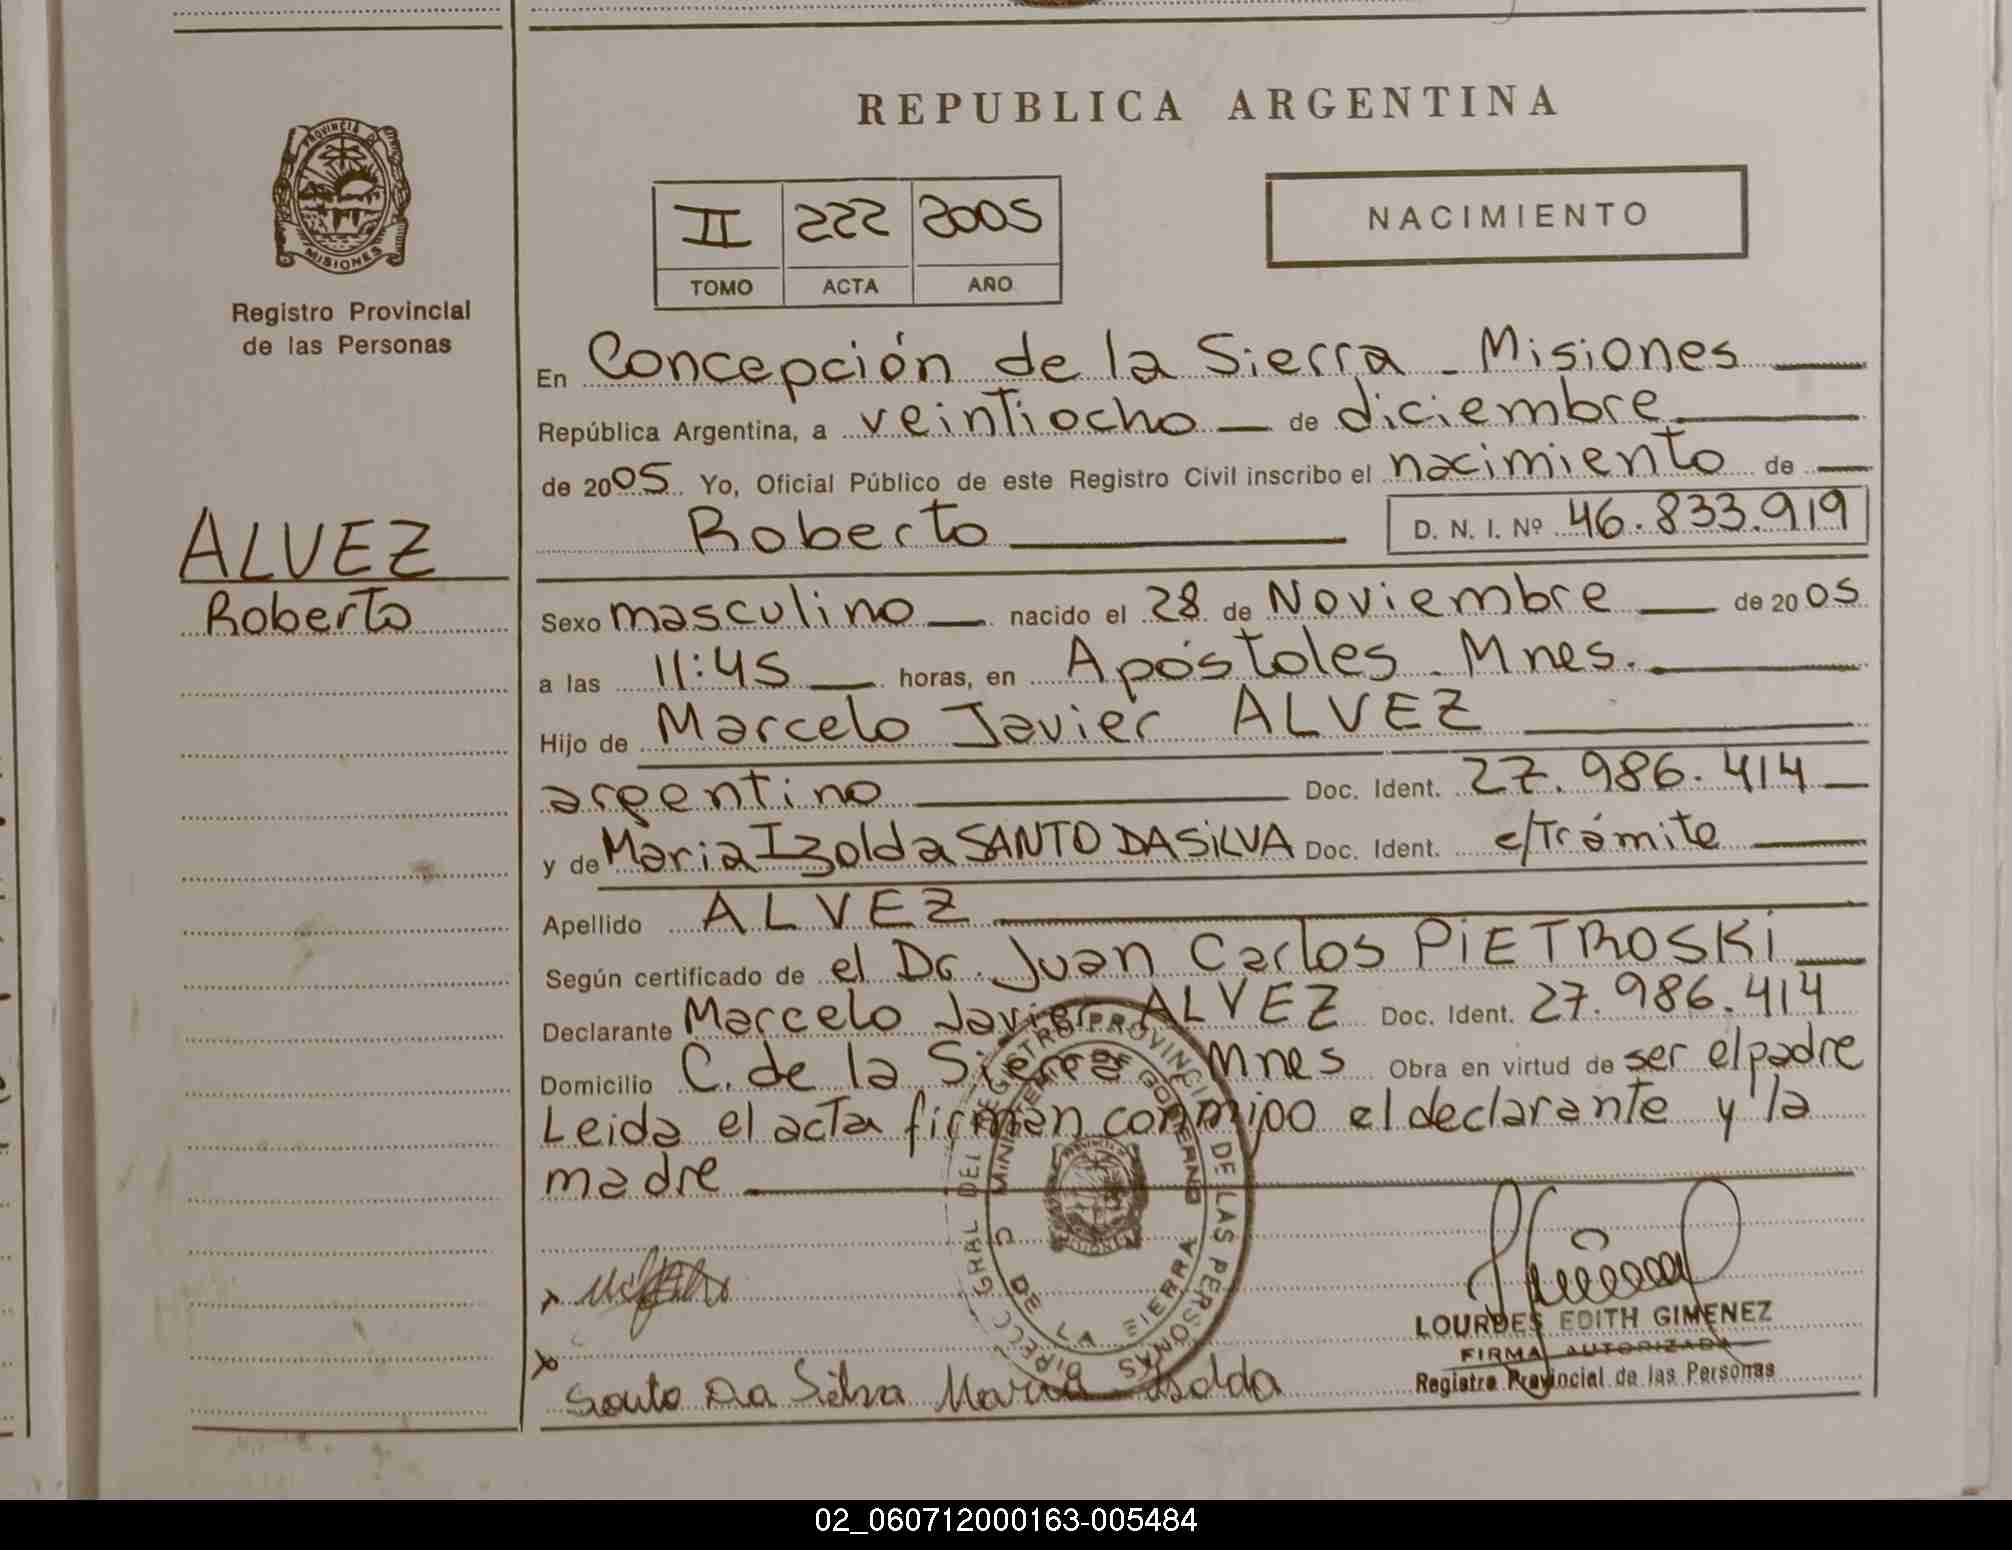 REPUBLICA ARGENTINA
PROVINCIA DE MISIONES
Registro Provincial
de las Personas
II 222 2005
TOMO ACTA AÑO
NACIMIENTO
En Concepción de la Sierra - Misiones
República Argentina, a veintiocho de diciembre
de 2005 Yo, Oficial Público de este Registro Civil inscribo el nacimiento de
Roberto D. N. I. Nº 46.833.919
ALVEZ
Roberto
Sexo masculino nacido el 28 de Noviembre de 2005
a las 11:45 horas, en Apóstoles - Mnes.
Hijo de Marcelo Javier ALVEZ
argentino Doc. Ident. 27.986.414
y de Maria Izolda SANTO DA SILVA Doc. Ident. e/Trámite
Apellido ALVEZ
Según certificado de el Dr. Juan Carlos PIETROSKI
Declarante Marcelo Javier ALVEZ Doc. Ident. 27.986.414
Domicilio C. de la Sierra Mnes Obra en virtud de ser el padre
Leida el acta firman conmigo el declarante y la
madre
DIRECC. GRAL DEL REGISTRO PROVINCIAL DE LAS PERSONAS
MINISTERIO DE GOBIERNO
C DE LA SIERRA
LOURDES EDITH GIMENEZ
FIRMA AUTORIZADA
Registro Provincial de las Personas
Souto Da Silva Maria Isolda
02_060712000163-005484